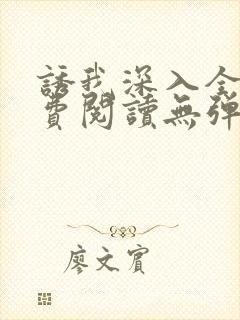 誘我深入全
費閱讀無彈
廖文賓